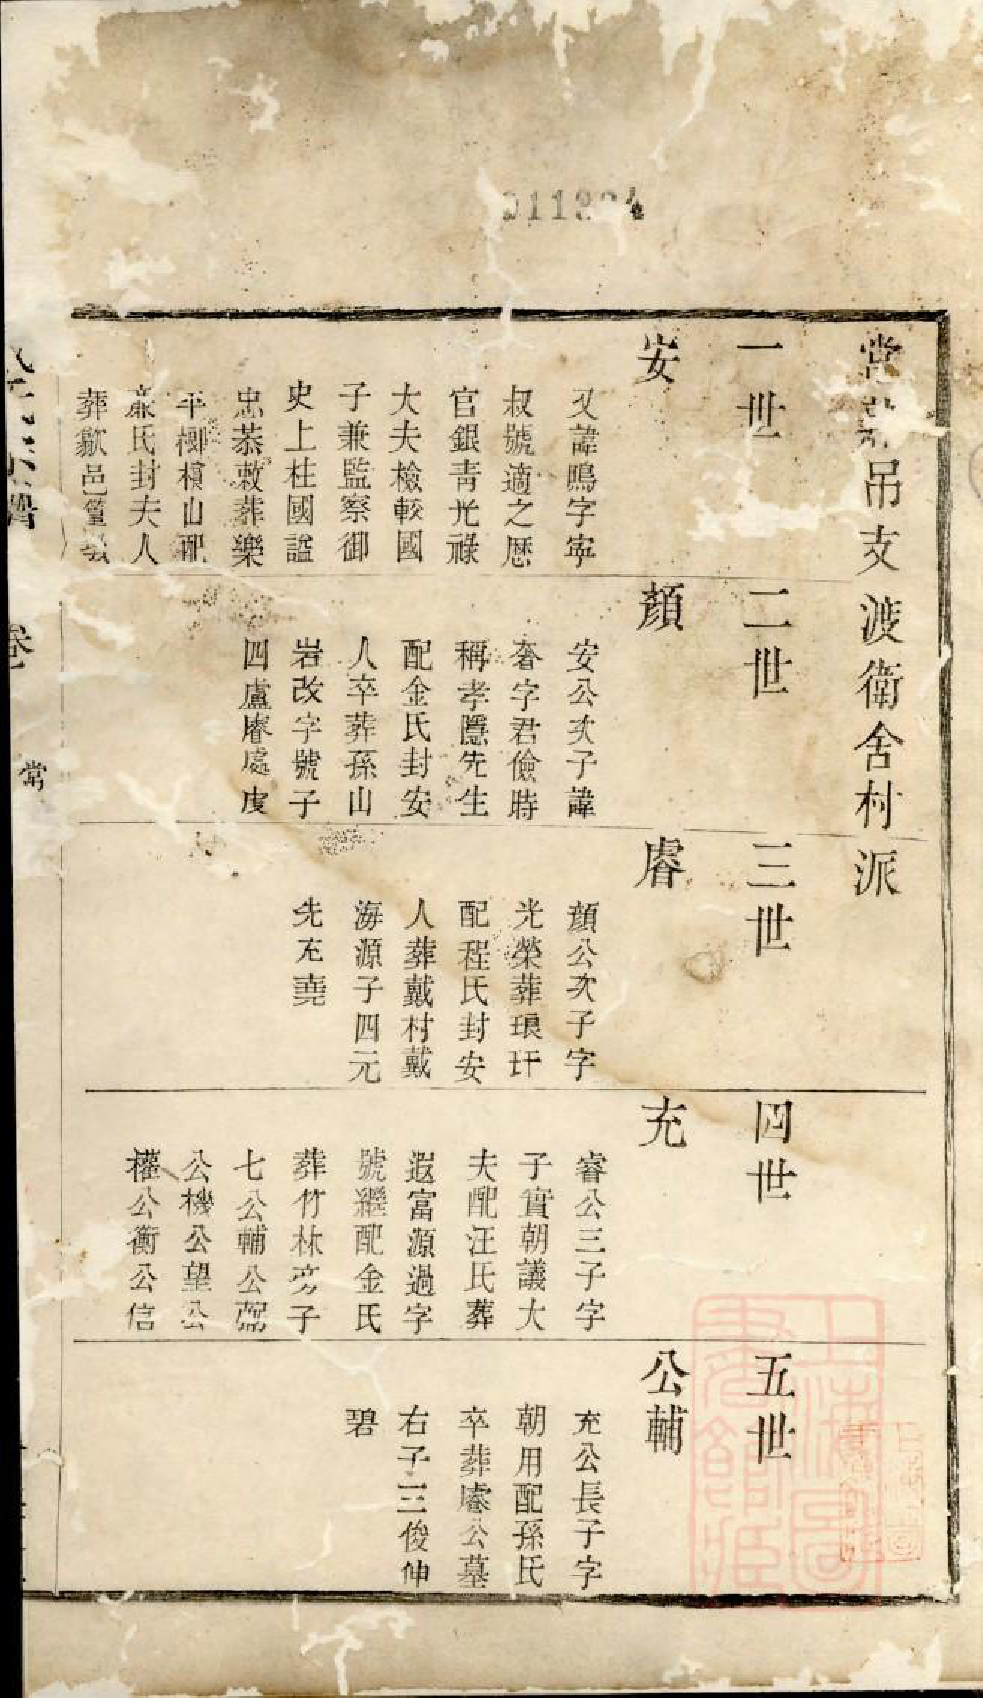 吊支渡衛舍村派
一世
安
又諱鳴字寜
叔號適之歷
官銀青光祿
大夫檢較國
子兼監察御
史上柱國諡
忠恭敕葬樂
平櫛橫山配
嚴氏封夫人
葬歙邑篁墩
二世
顏
安公次子諱
奢字君儉時
稱孝隱先生
配金氏封安
人卒葬孫山
岩改字號子
四盧睿處虔
三世
睿
顏公次子字
光榮葬琅玕
配程氏封安
人葬戴村戴
海源子四元
先充堯
四世
充
睿公三子字
子實朝議大
夫配汪氏葬
遐富源過字
號繼配金氏
葬竹林旁子
七公輔公弼
公機公望公
權公衡公信
五世
公輔
充公長子字
朝用配孫氏
卒葬睿公墓
右子三俊伸
碧
卷
常
上海圖書館藏